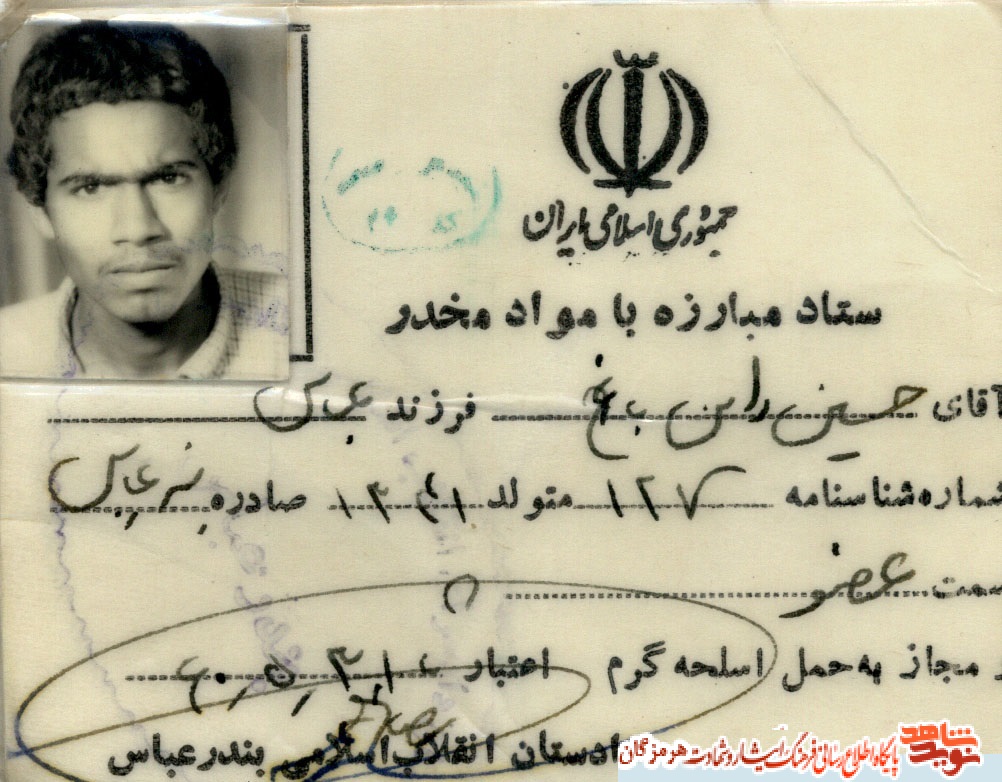 جمهوری اسلامی ایران
ستاد مبارزه با مواد مخدر
آقای حسین رامین باغ فرزند عباس
شماره شناسنامه ۱۲۷ متولد ۱۳۴۱ صادره بندرعباس
سمت عضو
مجاز به حمل اسلحه گرم اعتبار تا ۳۱
دادستان انقلاب اسلامی بندرعباس
نوید شاهد پایگاه اطلاع رسانی فرهنگ ایثار و شهادت هرمزگان